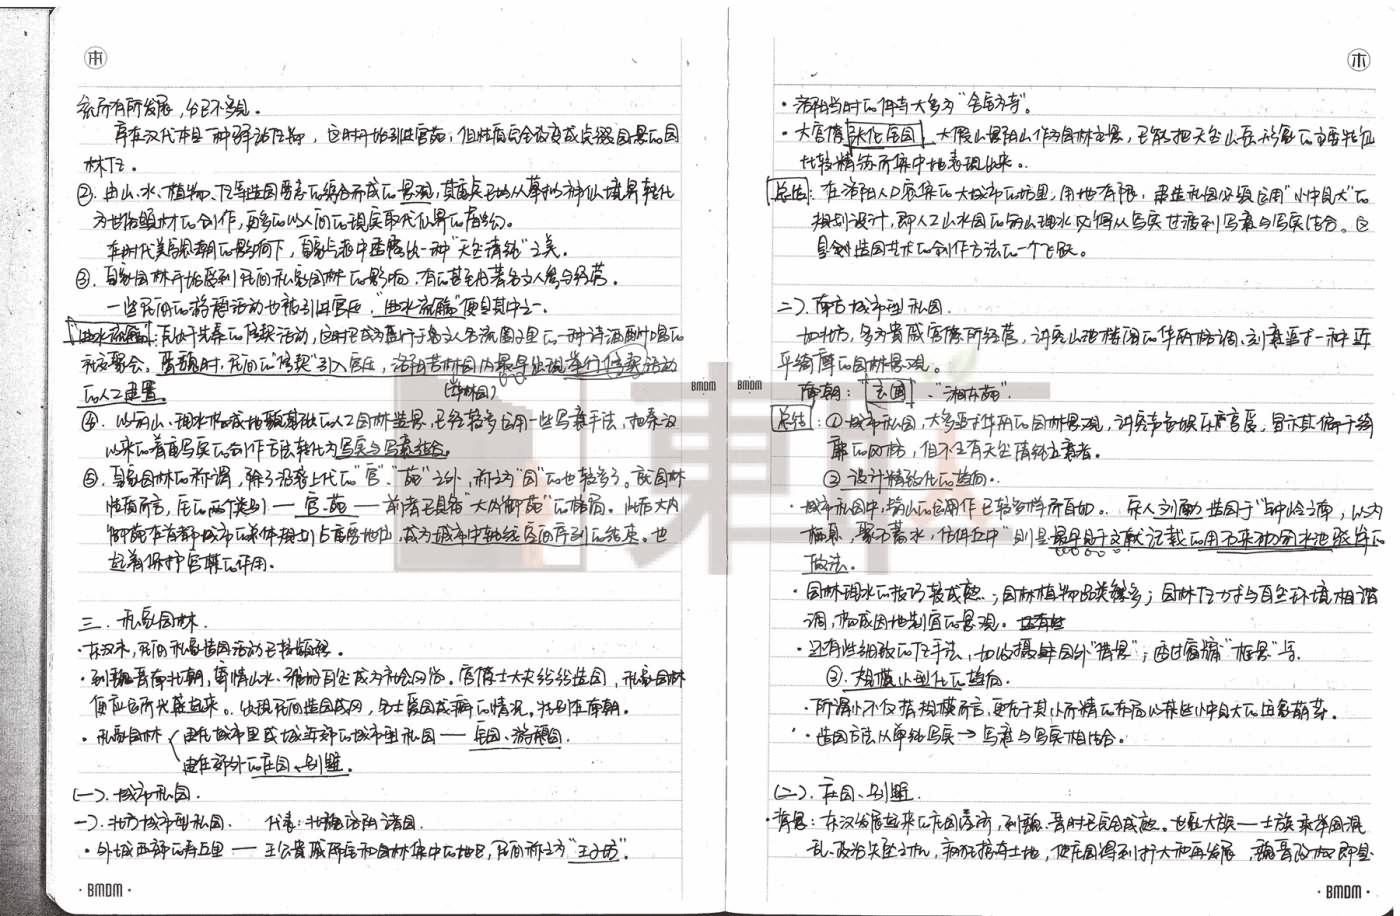 系所有所发展，台已不多见。
序在汉代本是一种驿站住都，这时开始引进官苑，但性质完全改变成点缀园景的园
林住。
②. 由山、水、植物、住等造园要素的综合而成的景观，其重点已从摹拟神仙境界转化
为世俗题材的创作，更多的以人间的现实取代仙界的虚幻。
在时代美学思潮的影响下，皇家气派中透露出一种"天然清纯"之美。
③. 皇家园林开始受到民间私家园林的影响，有的甚至由著名文人参与经营。
一些民间的游憩活动也被引进宫廷，"曲水流觞"便是其中之一。
"曲水流觞"：源于先秦的修禊活动，这时已成为盛行于名文人名流圈子里的一种诗酒酬唱的
社交聚会。曹魏时，民间的"修禊"引入宫廷，洛阳芳林园内最早出现举行修禊活动
的人工建置。
（华林园）
④. 以筑山、理水构成地貌基础的人工园林造景，已经较多运用一些写意手法，把秦汉
以来的着重写实的创作方法转化为写实与写意结合。
⑤. 皇家园林的称谓，除了沿袭上代的"宫"、"苑"之外，称之为"园"的也较多了。就园林
性质而言，它的两个类别——宫、苑——前者已具备"大内御苑"的格局。此后大内
御苑在首都城市的总体规划占重要地位，成为城市中轴线空间序列的结束。也
起着保护宫禁的作用。
三. 私家园林.
·东汉末，民间私家造园活动已较频繁。
·到魏晋南北朝，寄情山水、雅好自然成为社会风尚。官僚士大夫纷纷造园，私家园林
便应运而兴盛起来。出现民间造园成风，名士爱园成癖的情况。特别在南朝。
·私家园林 建在城市里或城近郊的城市型私园——宅园、游憩园.
建在郊外的庄园、别墅。
(一). 城市私园.
一). 北方城市型私园. 代表：北魏洛阳诸园.
·外城西部的寿丘里——王公贵戚所居和园林集中的地区，民间称之为"王子坊"。
·BMDM·
·洛阳当时的佛寺大多为"舍宅为寺"。
·大官僚张伦宅园，大假山景阳山作为园林主景，已能把天然山岳形象的主要特征
比较精练而集中地表现出来。
总结：在洛阳人口密集的大城市的坊里，用地有限，建造私园必须运用"小中见大"的
规划设计，即人工山水园的筑山理水必得从写实过渡到写意与写实结合。这
是创造园艺术的创作方法的一个飞跃。
二). 南方城市型私园.
如北方，多为贵戚官僚所经营，讲究山池楼阁的华丽格调，刻意追求一种近
乎绮靡的园林景观。
南朝：玄圃、"湘东苑".
总结：①城市私园，大多追求华丽的园林景观，讲究声色娱乐之享受，显示其偏于绮
靡的风格，但不乏有天然清纯立意者。
②设计精致化的趋向.
·城市私园中，筑山的运用作已较多样而自如。 宋人刘勔造园于"钟岭之南，以为
栖息，聚石蓄水，仿佛丘中"则是最早见于文献记载的用石来砌筑水池驳岸的
做法。
·园林理水的技巧较成熟；园林植物品类繁多；园林住力求与自然环境相谐
调，构成因地制宜的景观。
·还有些细致的住手法，如收摄园外"借景"；西窗"框景"等
③. 规模小型化的趋向.
·所谓小不仅指规模而言，更在于其小而精的布局以及某些小中见大的迹象萌芽。
·造园方法从单纯写实→写意与写实相结合。
(二). 庄园、别墅.
·背景：东汉发展起来的庄园经济，到魏、晋时已完全成熟。世家大族——士族乘举国混
乱、政治失控之机，疯狂掠夺土地，使庄园得到扩大和再发展，魏晋政权即是
·BMDM·
BMDM BMDM
東